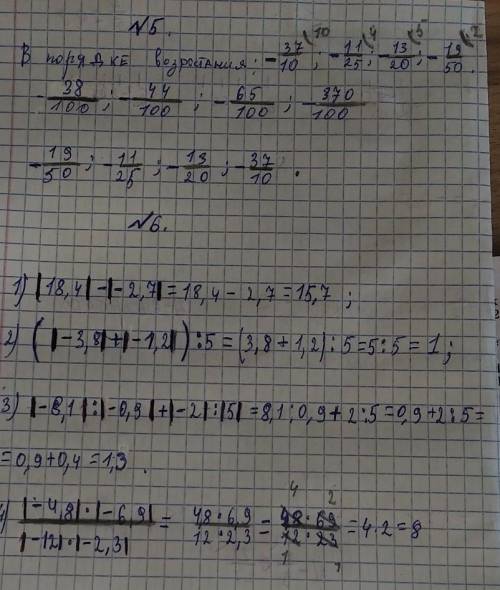 №5.
В порядке возростания: -37/10 (10; -11/25 (4; -13/20 (5; -19/50 (2.
-38/100; -44/100; -65/100; -370/100
-19/50; -11/25; -13/20; -37/10.
№6.
1) |18,4|-|-2,7|=18,4-2,7=15,7;
2) (|-3,8|+|-1,2|):5=(3,8+1,2):5=5:5=1;
3) |-8,1|:|-0,9|+|-2|:|5|=8,1:0,9+2:5=0,9+2:5=
=0,9+0,4=1,3.
4) |-4,8|·|-6,9| / |-12|·|-2,3| = 48·6,9 / 12·2,3 = 48·69 / 12·23 = 4·2=8
4 2
1 1